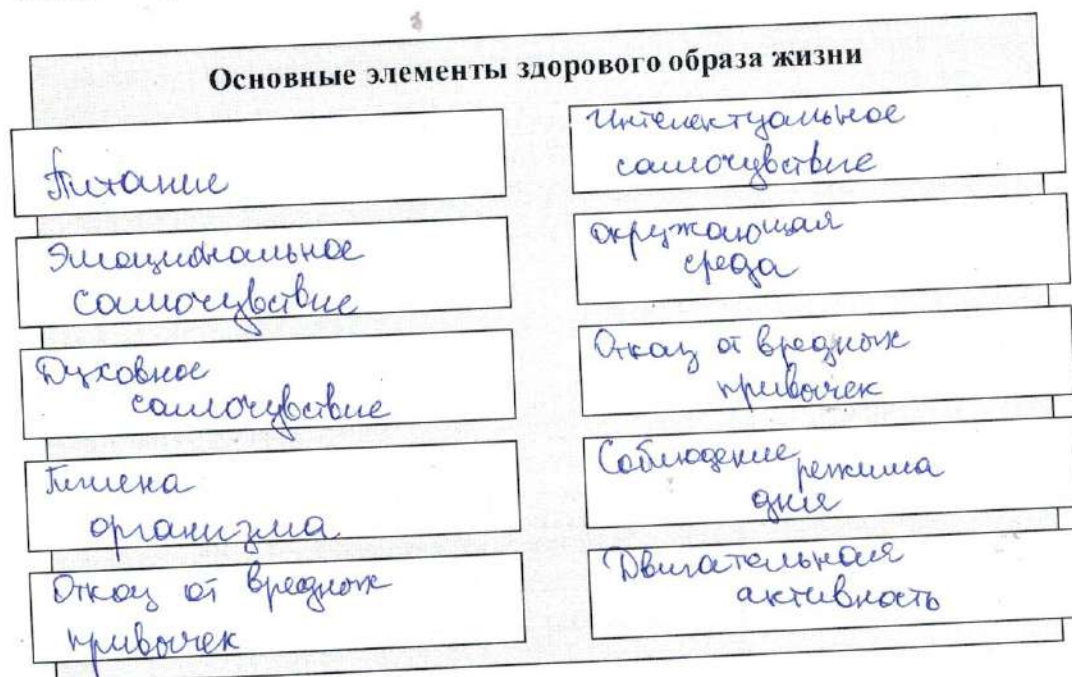 Основные элементы здорового образа жизни
Питание
Эмоциональное
самочувствие
Духовное
самочувствие
Гигиена
организма
Отказ от вредных
привычек
Интелектуальное
самочувствие
окружающая
среда
Отказ от вредных
привычек
Соблюдение режима
дня
Двигательная
активность